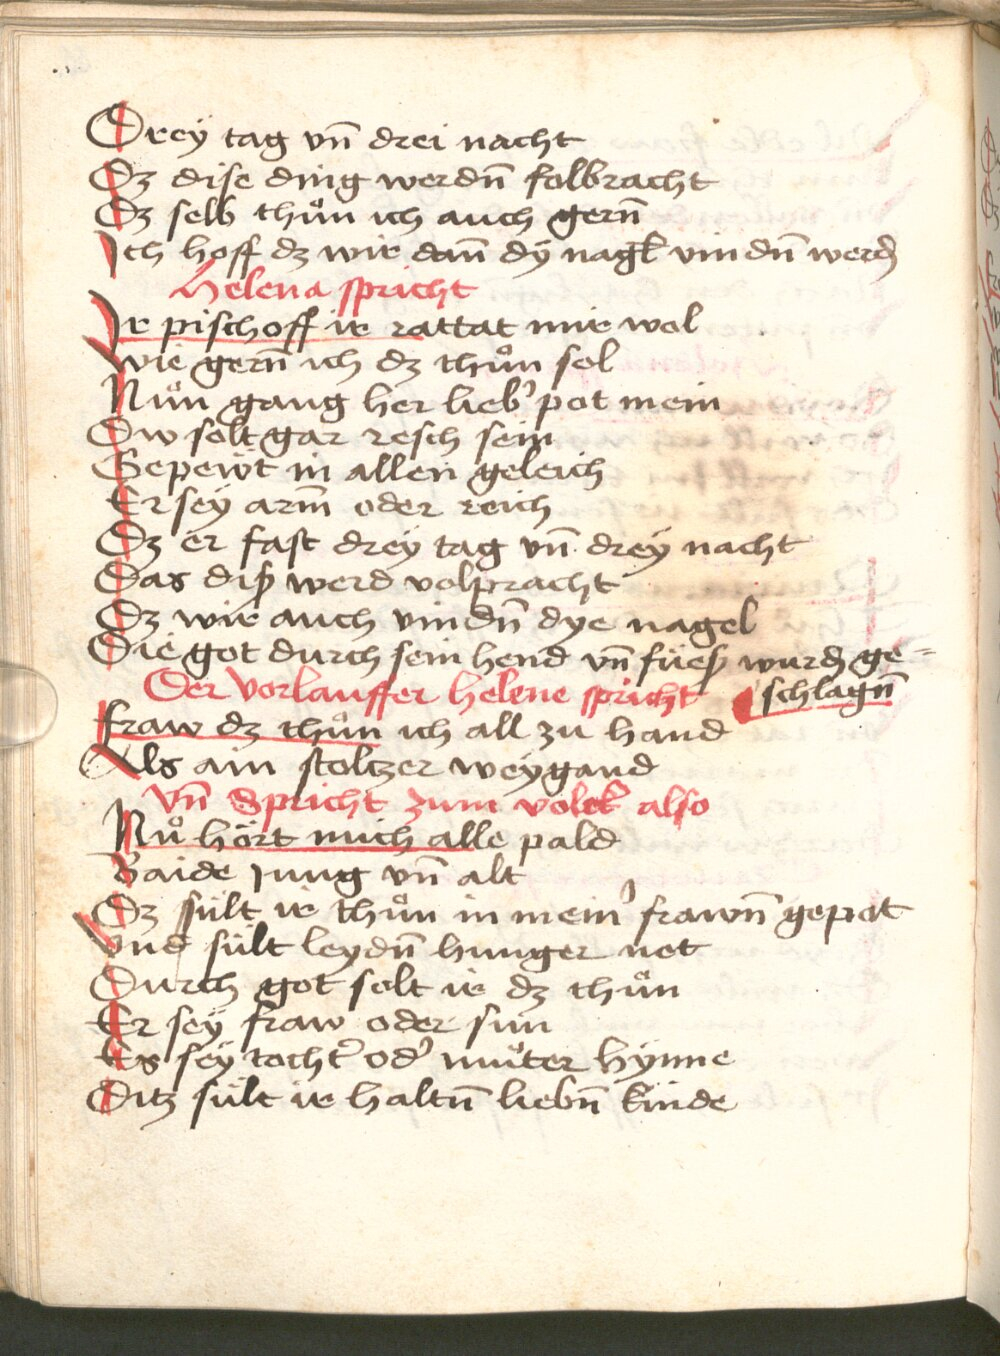 Drey tag vn̄ drei nacht
Dz dise ding werdn̄ folbracht
Dz selb thůn ich auch gern̄
Ich hoff dz wir dan̄ dy nagl vindn̄ werdn̄
Helena spricht
Ir pischoff ir rattat mir wol
wie gern̄ ich dz thůn sol
Nůn gang her lieb' pot mein
Dw solt gar resch sein
Gepewt in allen geleich
Er sey arm̄ oder reich
Dz er fast drey tag vn̄ drey nacht
Das diß werd volpracht
Dz wir auch vindn̄ dye nagel
Die got durch sein hend vn̄ füeß wurdn̄ ge=
schlagn̄
Der vorlauffer helene spricht
fraw dz thůn ich all zu hand
Als ain stoltzer weygand
Vn̄ Spricht zum volck also
Nů hört mich alle pald
Baide Jung vn̄ alt
Dz sült ir thůn in mein' frawn̄ gepot
Vnd sült leydn̄ hunger not
Durch got solt ir dz thůn
Er sey fraw oder sun
Es sey tocht' od' můter hynne
Ditz sült ir haltn̄ liebn̄ kinde